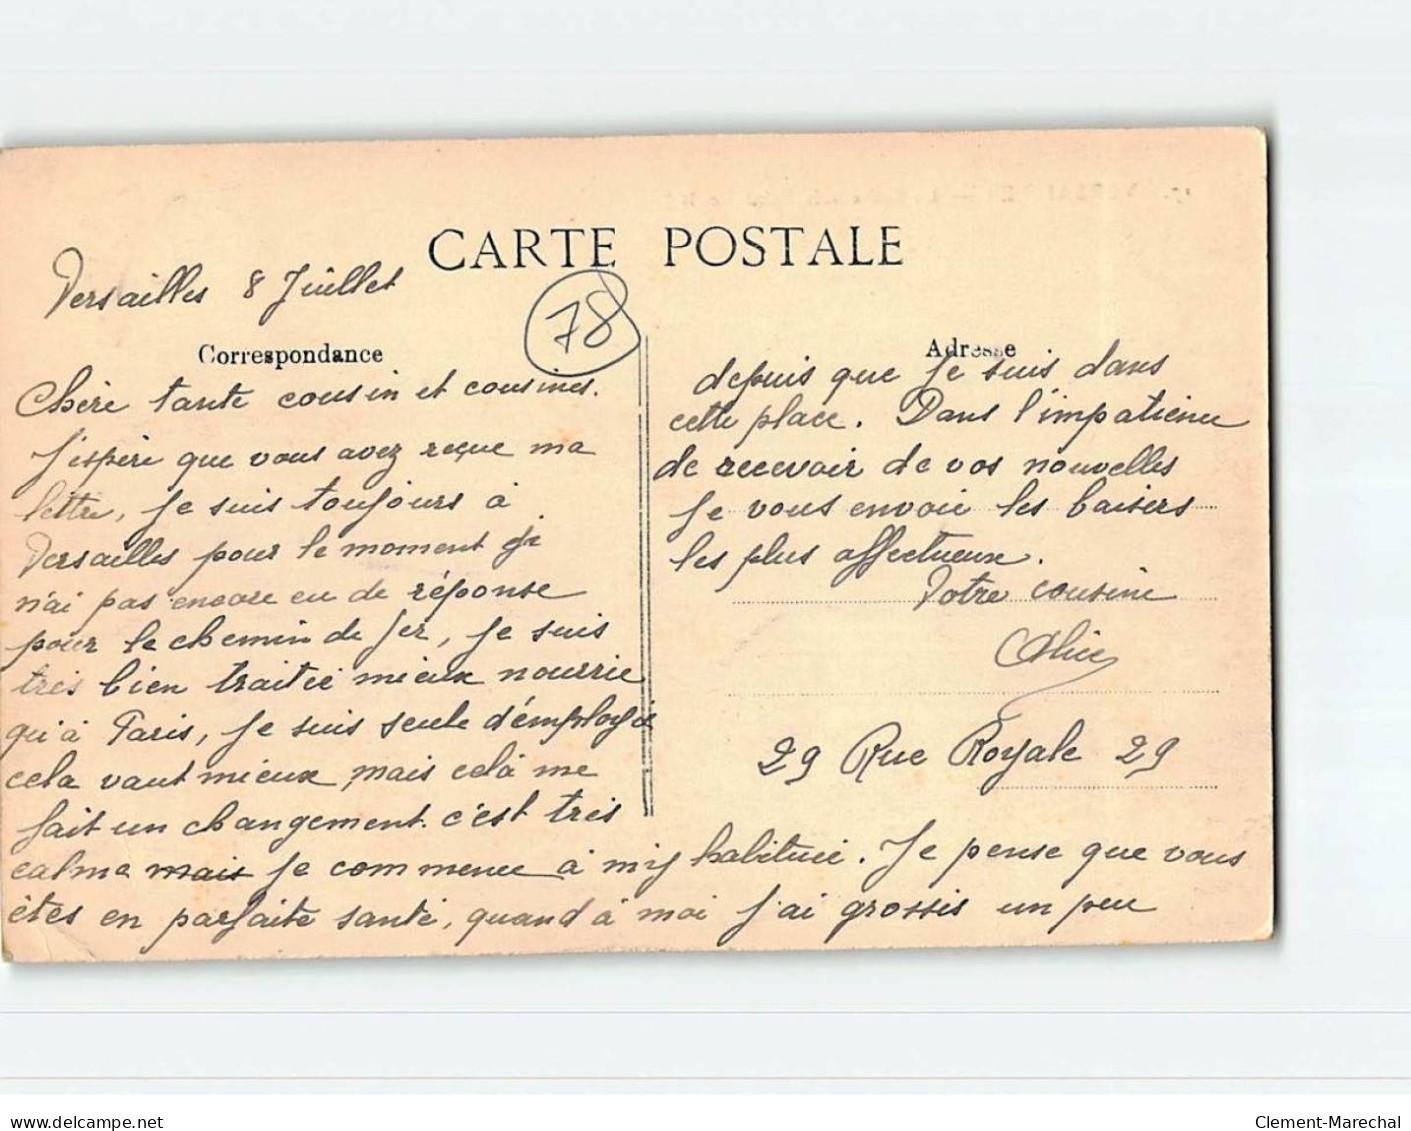 CARTE POSTALE
Versailles 8 Juillet
78
Correspondance
Chère tante cousin et cousines.
J'espère que vous avez reçue ma
lettre, je suis toujours à
Versailles pour le moment je
n'ai pas encore eu de réponse
pour le chemin de fer, je suis
très bien traitée mieux nourrie
qu'à Paris, je suis seule d'employée
cela vaut mieux mais celà me
fait un changement. c'est très
calme mais je commence à m'y habituée. Je pense que vous
êtes en parfaite santé, quand à moi j'ai grossis un peu
Adresse
depuis que je suis dans
cette place. Dans l'impatience
de recevoir de vos nouvelles
je vous envoie les baisers
les plus affectueux.
Votre cousine
Alice
29 Rue Royale 29
delcampe.net
Clement-Marechal